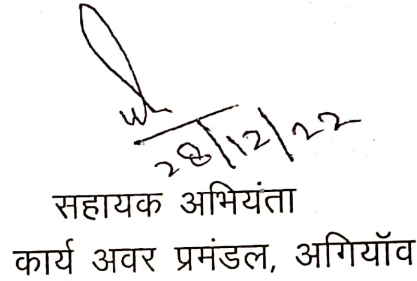 28/12/22
सहायक अभियंता
कार्य अवर प्रमंडल, अगियॉव